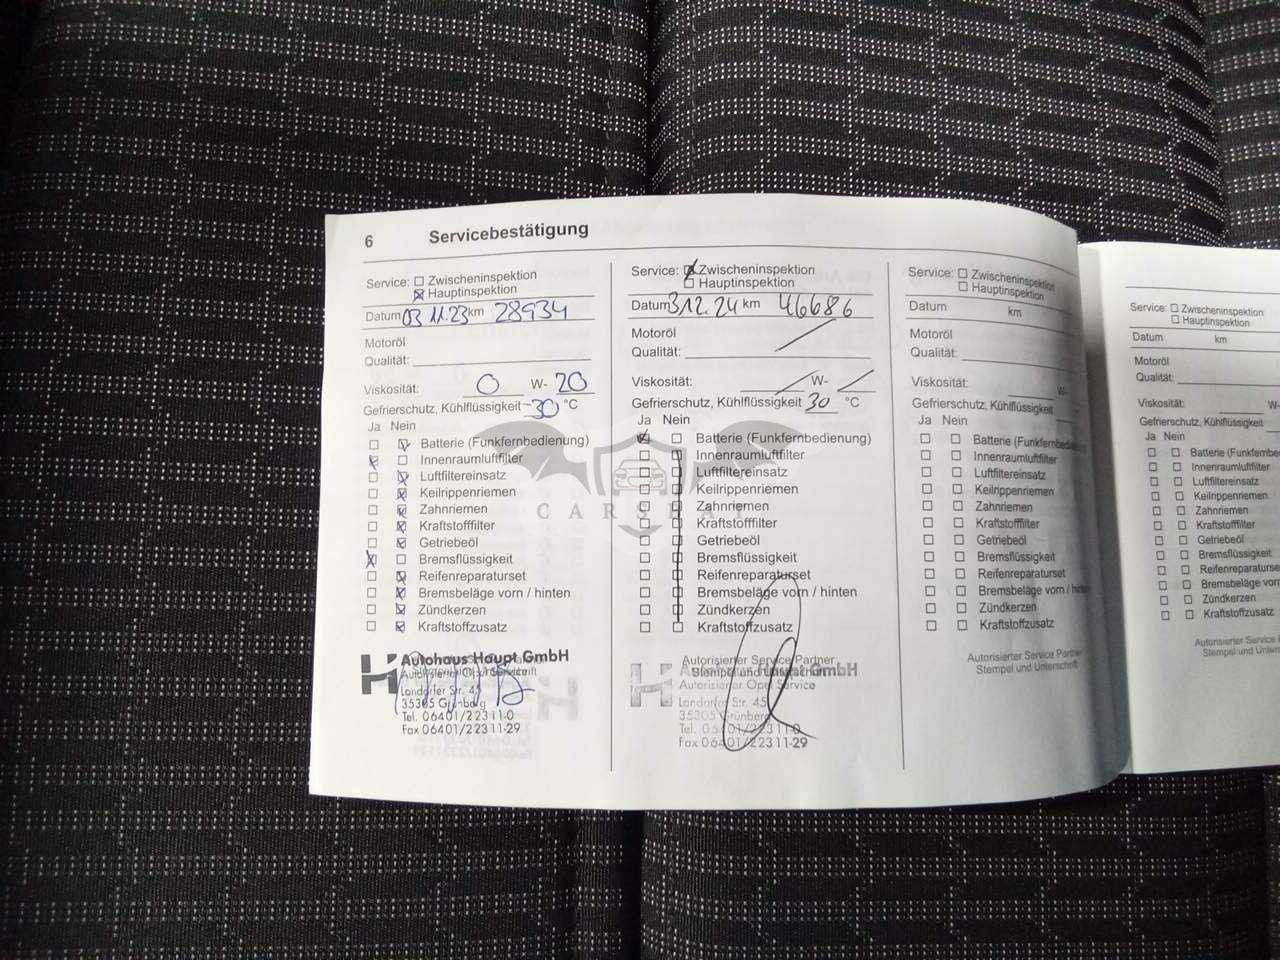 6 Servicebestätigung
Service: Zwischeninspektion
Hauptinspektion
Datum 03 11.23 km 28934
Motoröl
Qualität:
Viskosität: 0 W- 20
Gefrierschutz, Kühlflüssigkeit -30 °C
Ja Nein
Batterie (Funkfernbedienung)
Innenraumluftfilter
Luftfiltereinsatz
Keilrippenriemen
Zahnriemen
Kraftstofffilter
Getriebeöl
Bremsflüssigkeit
Reifenreparaturset
Bremsbeläge vorn / hinten
Zündkerzen
Kraftstoffzusatz
Autohaus Haupt GmbH
Autorisierter Opel Service
Londorfer Str. 45
35305 Grünberg
Tel. 06401/22311-0
Fax 06401/22311-29
Service: Zwischeninspektion
Hauptinspektion
Datum 3.12.24 km 46686
Motoröl
Qualität:
Viskosität: W-
Gefrierschutz, Kühlflüssigkeit 30 °C
Ja Nein
Batterie (Funkfernbedienung)
Innenraumluftfilter
Luftfiltereinsatz
Keilrippenriemen
Zahnriemen
Kraftstofffilter
Getriebeöl
Bremsflüssigkeit
Reifenreparaturset
Bremsbeläge vorn / hinten
Zündkerzen
Kraftstoffzusatz
Autorisierter Service Partner
Stempel und Unterschrift
Autohaus Haupt GmbH
Autorisierter Opel Service
Londorfer Str. 45
35305 Grünberg
Tel. 06401/22311-0
Fax 06401/22311-29
Service: Zwischeninspektion
Hauptinspektion
Datum km
Motoröl
Qualität:
Viskosität: W-
Gefrierschutz, Kühlflüssigkeit
Ja Nein
Batterie (Funkfernbedie
Innenraumluftfilter
Luftfiltereinsatz
Keilrippenriemen
Zahnriemen
Kraftstofffilter
Getriebeöl
Bremsflüssigkeit
Reifenreparaturset
Bremsbeläge vorn / hin
Zündkerzen
Kraftstoffzusatz
Autorisierter Service Partn
Stempel und Unterschrift
Service: Zwischeninspektion
Hauptinspektion
Datum km
Motoröl
Qualität:
Viskosität: W-
Gefrierschutz, Kühlflüssigkeit
Ja Nein
Batterie (Funkfernbe
Innenraumluftfilter
Luftfiltereinsatz
Keilrippenriemen
Zahnriemen
Kraftstofffilter
Getriebeöl
Bremsflüssigkeit
Reifenreparaturset
Bremsbeläge vorn
Zündkerzen
Kraftstoffzusatz
Autorisierter Service
Stempel und Unters